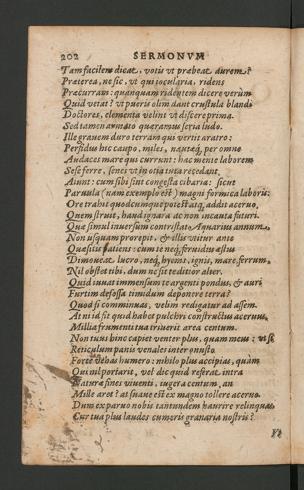 202 SERMONVM
Tam facilem dicat, votis vt præbeat aurem?
Præterea, ne sic, vt qui iocularia, ridens
Præcurram: quanquam ridentem dicere verùm
Quid vetat? vt pueris olim dant crustula blandi
Doctores, elementa velint vt discere prima.
Sed tamen amoto quæramus seria ludo.
Ille grauem duro terram qui vertit aratro:
Perfidus hic caupo, miles, nautæq́; per omne
Audaces mare qui currunt: hac mente laborem
Sese ferre, senes vt in otia tuta recedant,
Aiunt: cum sibi sint congesta cibaria: sicut
Paruula (nam exemplo est) magni formica laboris
Ore trahit quodcumque potest atq́; addit aceruo,
Quem struit, haud ignara ac non incauta futuri.
Quæ simul inuersum contristat Aquarius annum,
Non usquam prorepit, & illis vtitur ante
Quæsitis patiens: cum te neq́; feruidus æstus
Dimoueat lucro, neq́; hyems, ignis, mare, ferrum,
Nil obstet tibi, dum ne sit te ditior alter.
Quid iuuat immensum te argenti pondus, & auri
Furtim defossa timidum deponere terra?
Quod si comminuas, vilem redigatur ad assem.
At ni id sit quid habet pulchri constructus aceruus,
Millia frumenti tua triuerit area centum.
Non tuus hinc capiet venter plus, quam meus: vt si
Reticulum panis venales inter onusto
Forte vehas humero: nihilo plus accipias, quàm
Qui nil portarit, vel dic quid referat intra
Naturæ fines viuenti, iugera centum, an
Mille aret? at suaue est ex magno tollere aceruo.
Dum ex paruo nobis tantundem haurire relinquas,
Cur tua plus laudes cumeris granaria nostris?